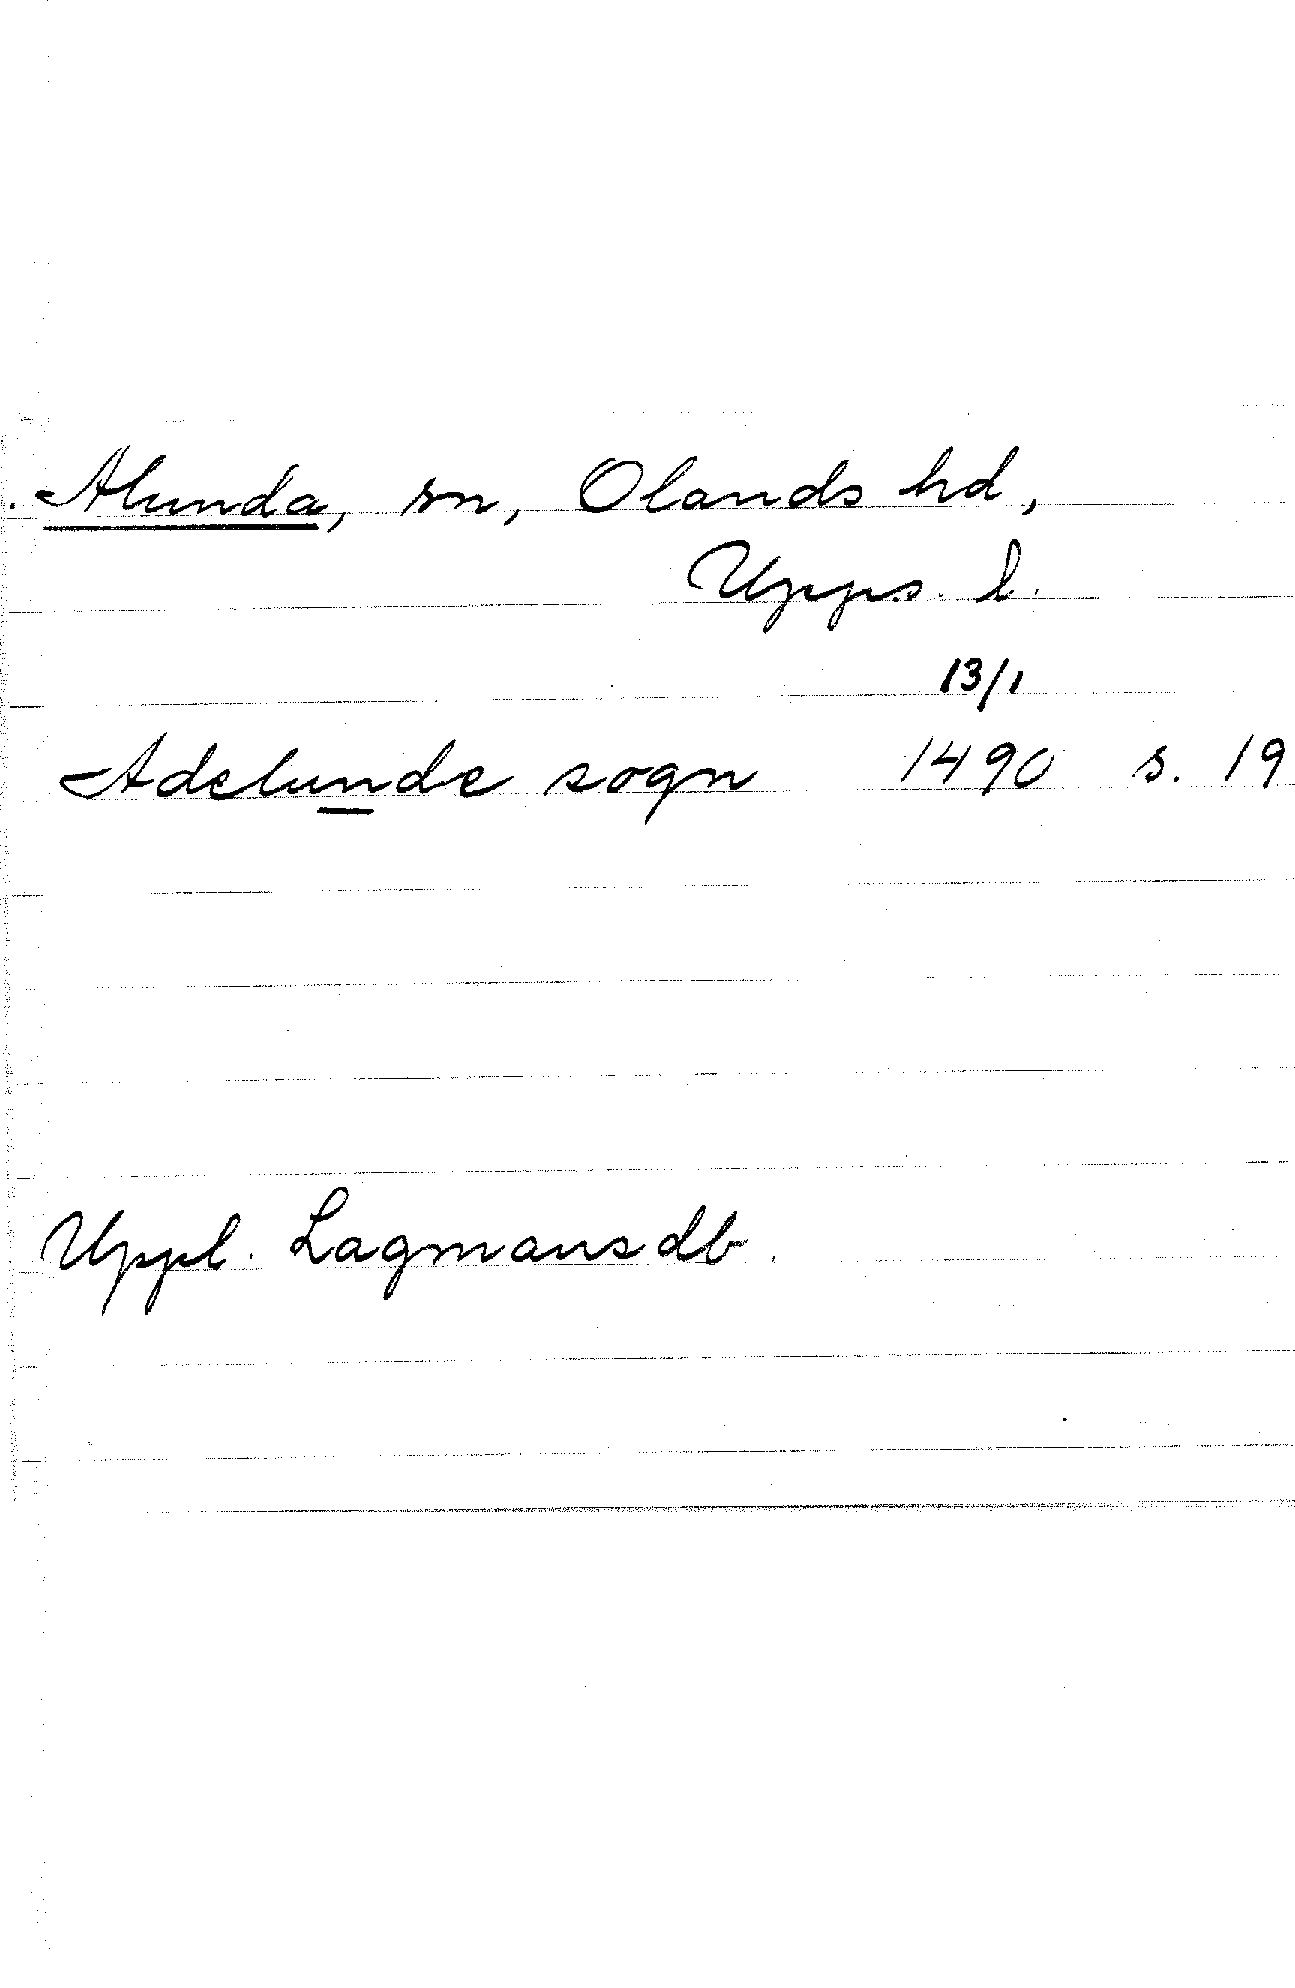 Alunda, sn, Olands hd,
Upps. l.
13/1
Adelunde sogn 1490 s. 19
Uppl. Lagmansdb.